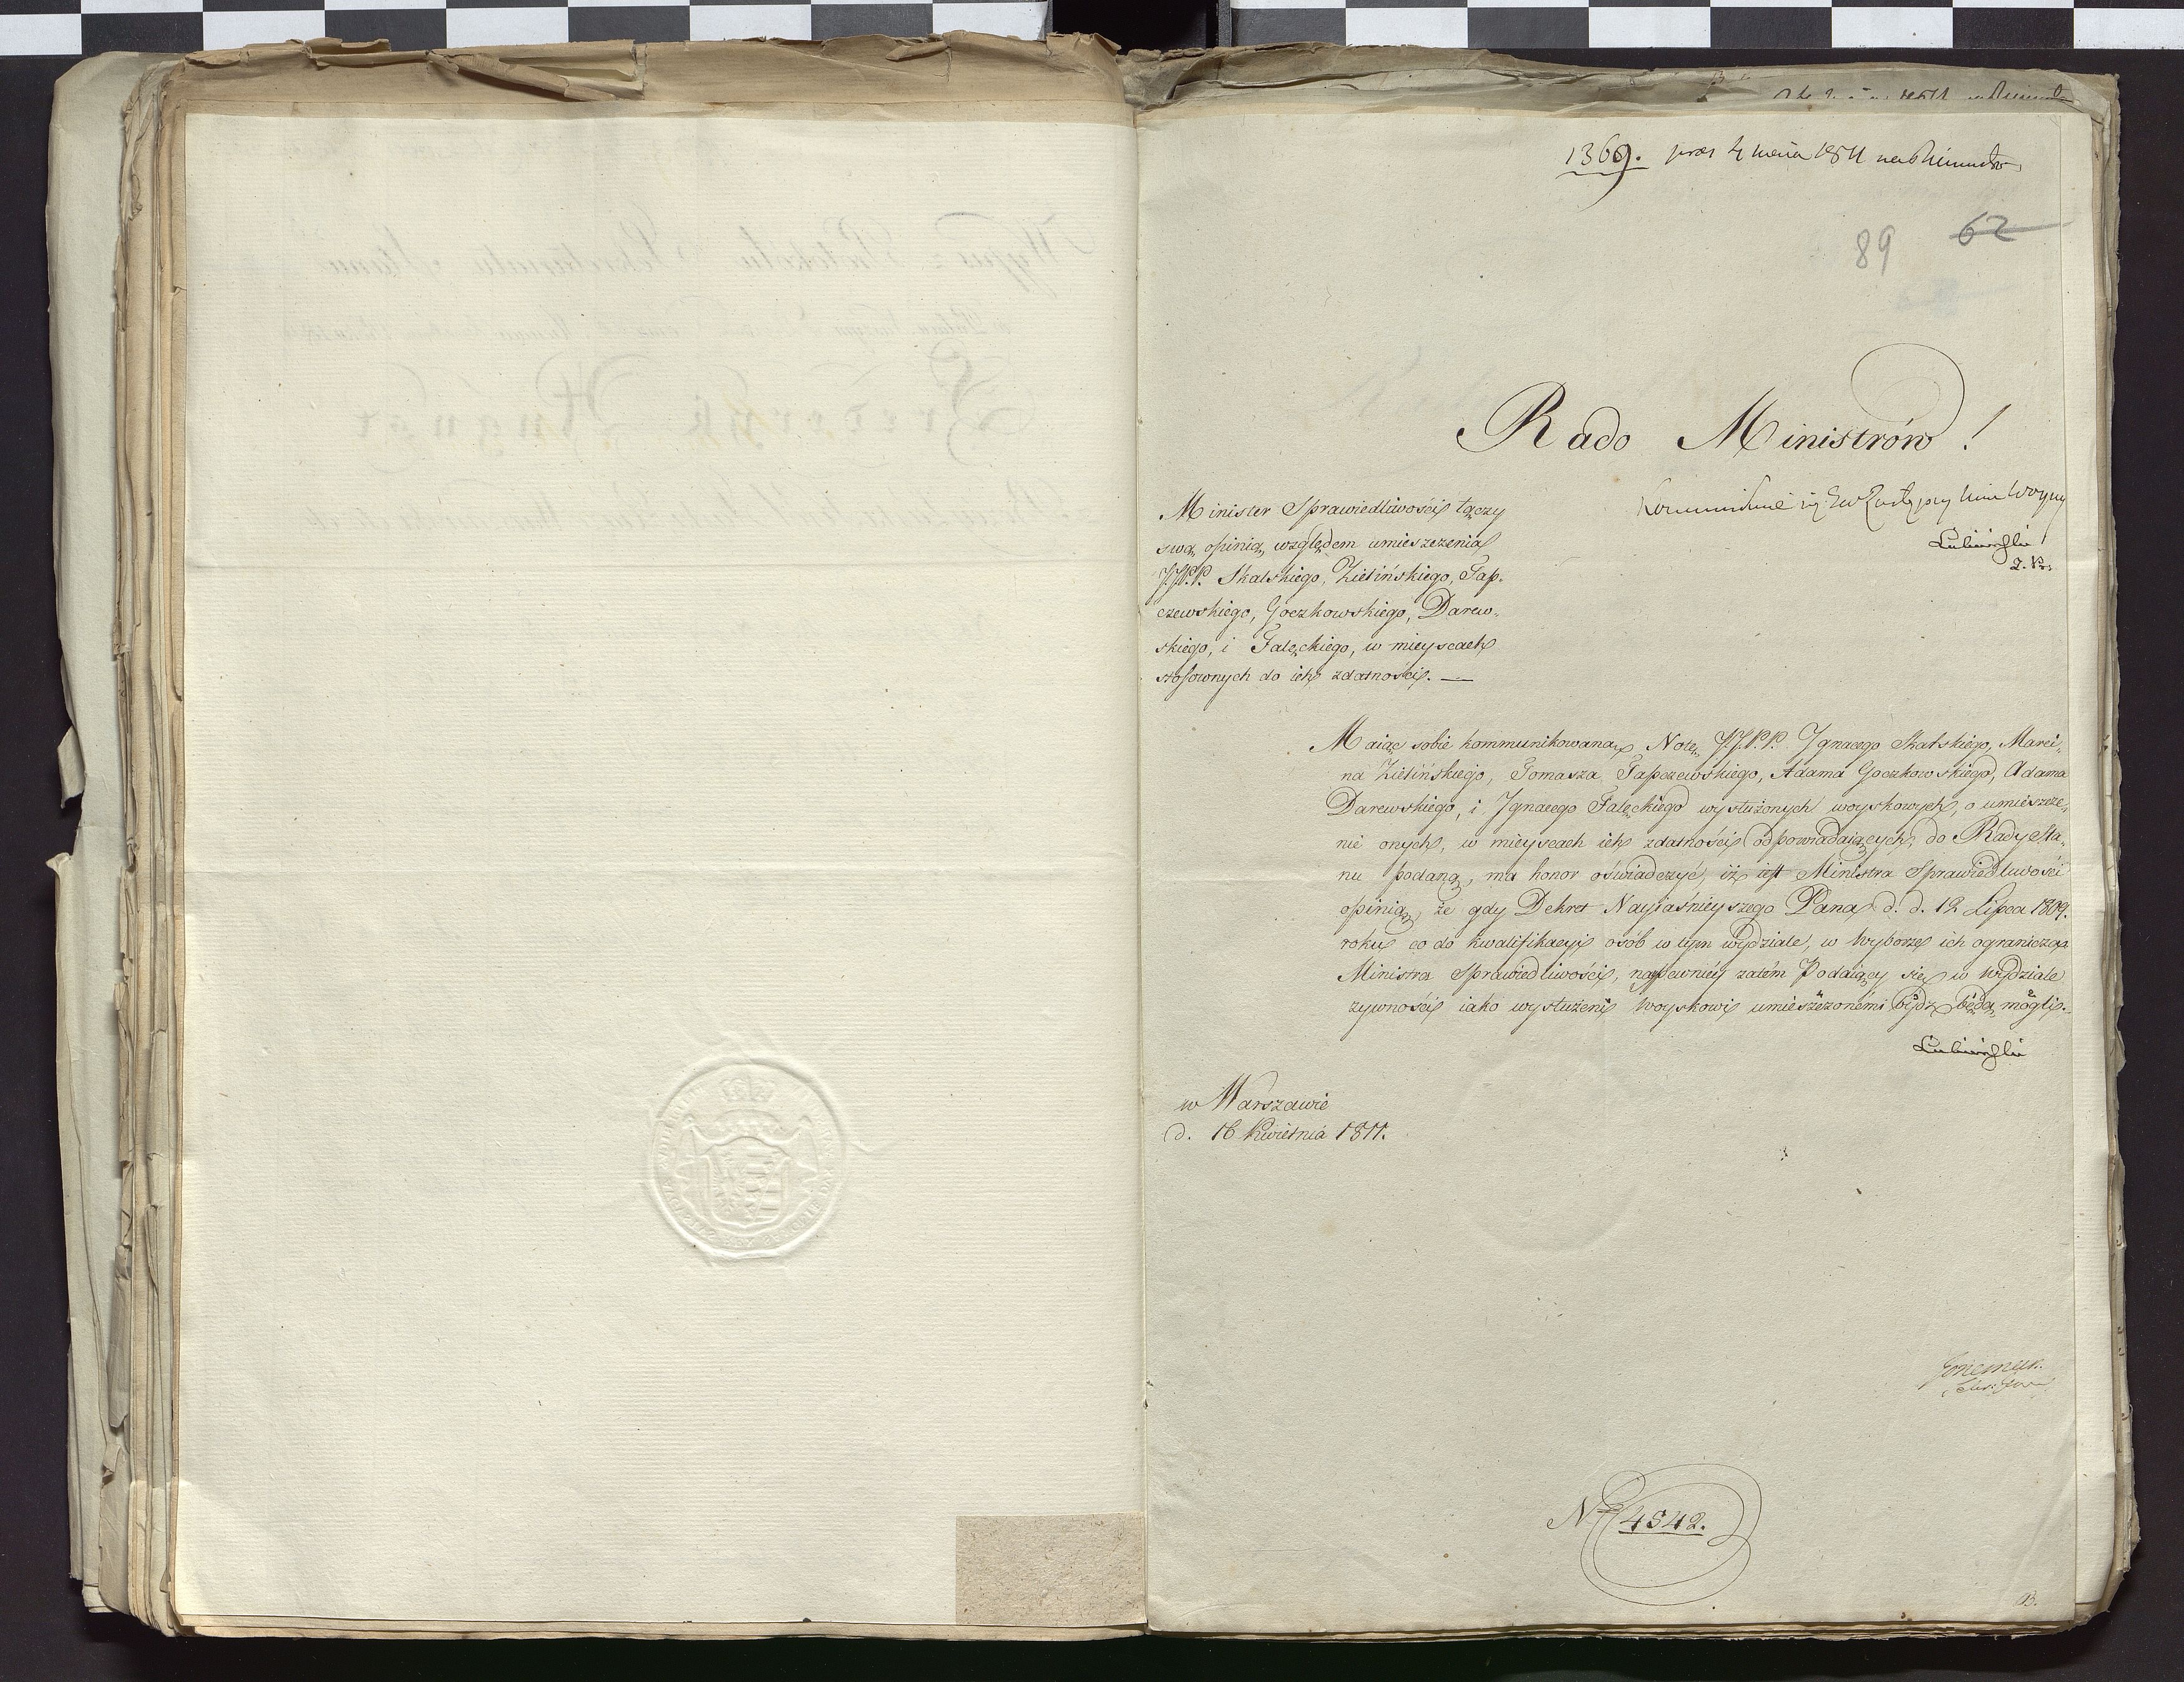 1369. pras 4 maia 1811 na Ministr
89 62
Rado Ministrów!
Minister Sprawiedliwości łączy
swą opinią względem umieszczenia
JJ.P.P. Skalskiego, Zielińskiego, Tap-
czewskiego, Goczkowskiego, Darew-
skiego, i Falęckiego, w mieyscach
stosownych do ich zdatności. —
Woyny
Lubieński
Maiąc sobie kommunikowaną Notę J.J.P.P. Ignacego Skalskiego, Marci-
na Zielińskiego, Tomasza Tapczewskiego, Adama Goczkowskiego, Adama
Darewskiego, i Ignacego Falęckiego wysłużonych woyskowych, o umieszcze-
nie onych, w mieyscach ich zdatności odpowiadaiących, do Rady Sta-
nu podaną, ma honor oświadczyć, iż iest Ministra Sprawiedliwości
opinią, że gdy Dekret Nayiaśnieyszego Pana d. d. 12 Lipca 1809.
roku co do kwalifikacyi osób w tym wydziale, w wyborze ich ogranicza
Ministra Sprawiedliwości, naypewniey zatém Podaiący się w wydziale
żywności iako wysłużeni Woyskowi umieszczonémi bydź będą mogli.
Lubieński
w Warszawie
d. 16 Kwietnia 1811.
No 4542.
B.